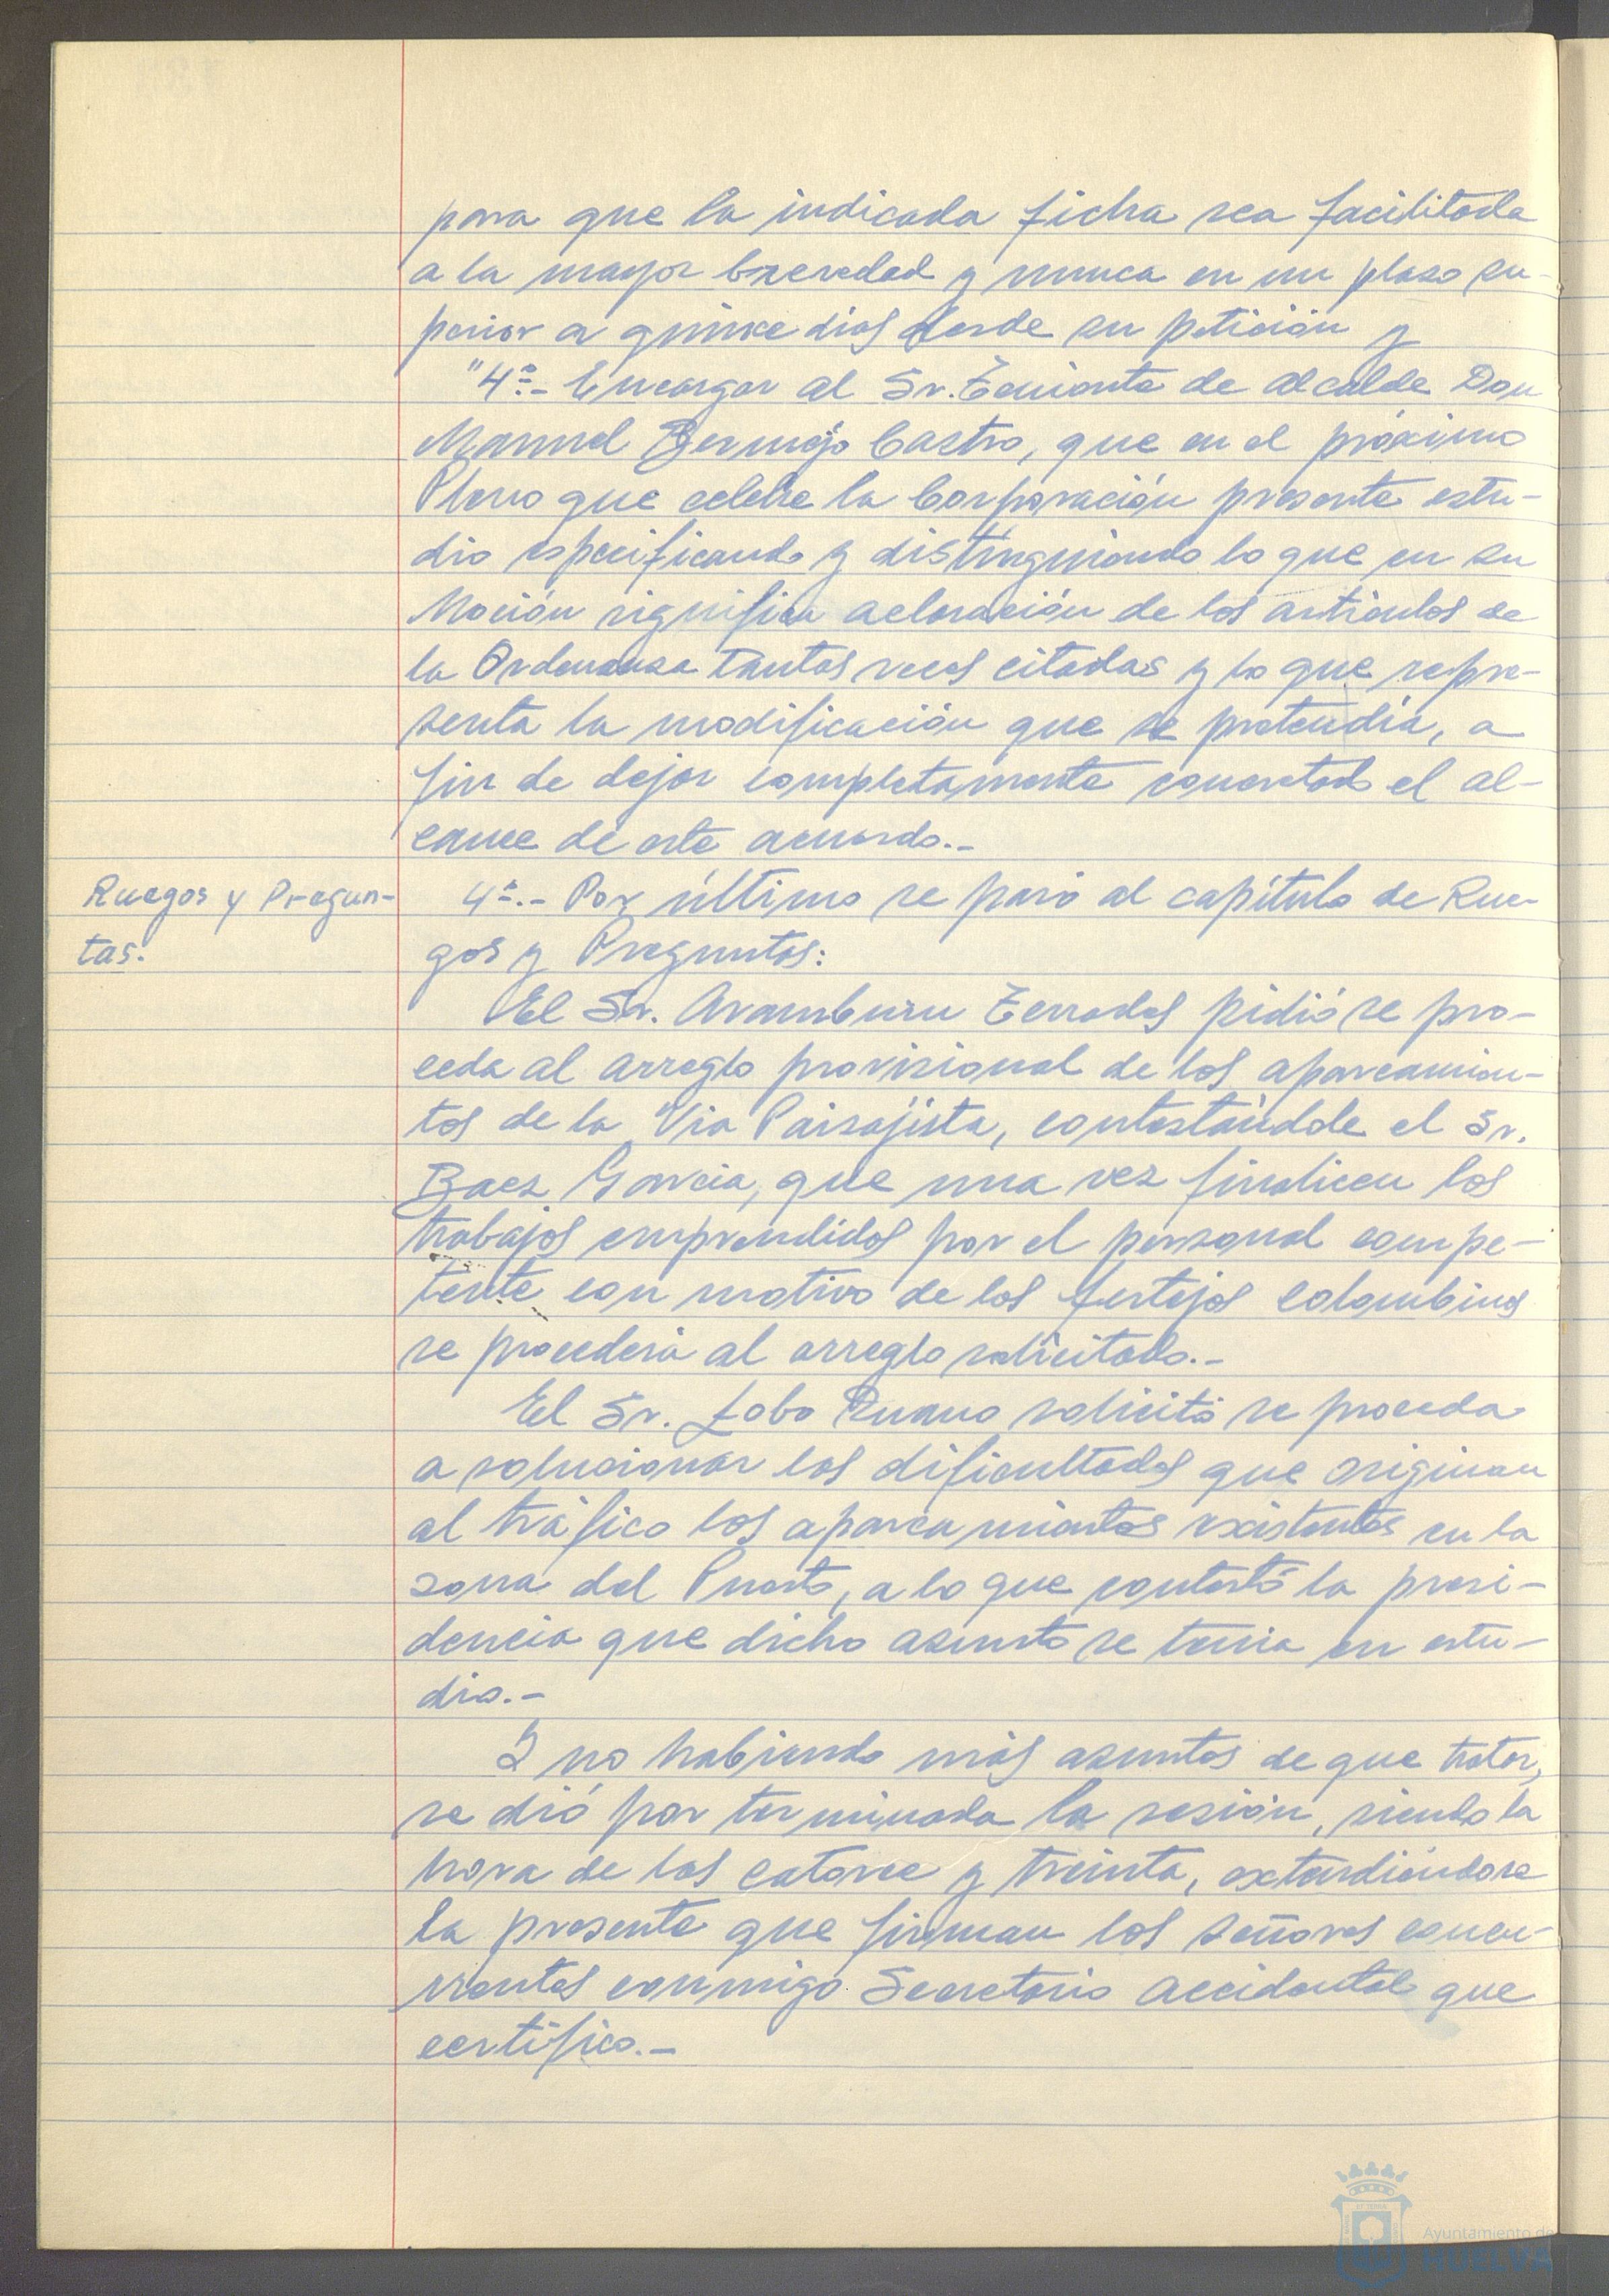 para que la indicada ficha sea facilitada
a la mayor brevedad y nunca en un plazo su-
perior a quince dias desde su petición y
"4º.- Encargar al Sr. Teniente de Alcalde Don
Manuel Bermejo Castro, que en el próximo
Pleno que celebre la Corporación presente estu-
dio especificando y distinguiendo lo que en su
Moción significa acloración de los articulos de
la Ordenanza tantas veces citadas y lo que repre-
senta la modificación que se pretendia, a
fin de dejar completamente concretado el al-
cance de este acuerdo.-
Ruegos y Pregun-
tas.
4º.- Por último se pasó al capítulo de Rue-
gos y Preguntas:
El Sr. Aramburu Terrades pidió se pro-
ceda al arreglo provisional de los aparcamien-
tos de la Via Paisajista, contestándole el Sr.
Baez Garcia, que una vez finalicen los
trabajos emprendidos por el personal compe-
tente con motivo de los festejos colombinos
se procederá al arreglo solicitado.-
El Sr. Lobo Ruano solicitó se proceda
a solucionar las dificultades que originan
al tráfico los aparcamientos existentes en la
zona del Puerto, a lo que contestó la presi-
dencia que dicho asunto se tenia en estu-
dio.-
Y no habiendo más asuntos de que tratar,
se dió por terminada la sesión, siendo la
hora de las catorce y treinta, extendiéndose
la presente que firman los señores concu-
rrentes conmigo Secretario Accidental que
certifico.-
Ayuntamiento de
HUELVA